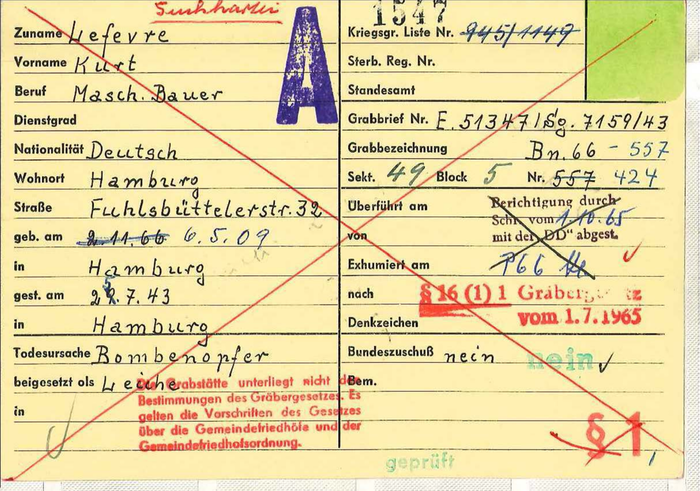 Suchkartei
A
1547
Zuname Lefevre
Vorname Kurt
Beruf Masch. Bauer
Dienstgrad
Nationalität Deutsch
Wohnort Hamburg
Straße Fuhlsbüttelerstr. 32
geb. am 2.11.66 6.5.09
in Hamburg
gest. am 25.7.43
in Hamburg
Todesursache Bombenopfer
beigesetzt als Leiche
in
Die Grabstätte unterliegt nicht den
Bestimmungen des Gräbergesetzes. Es
gelten die Vorschriften des Gesetzes
über die Gemeindefriedhöfe und der
Gemeindefriedhofsordnung.
Kriegsgr. Liste Nr. 945/1149
Sterb. Reg. Nr.
Standesamt
Grabbrief Nr. E. 51347/Sg. 7159/43
Grabbezeichnung Bn. 66 - 557
Sekt. 49 Block 5 Nr. 557 424
Überführt am
von
Berichtigung durch
Schr. vom 1.10.65
mit der "DD" abgest.
Exhumiert am P66
nach § 16 (1) 1 Gräbergesetz
vom 1.7.1965
Denkzeichen
Bundeszuschuß nein nein
Bem.
§ 1
geprüft